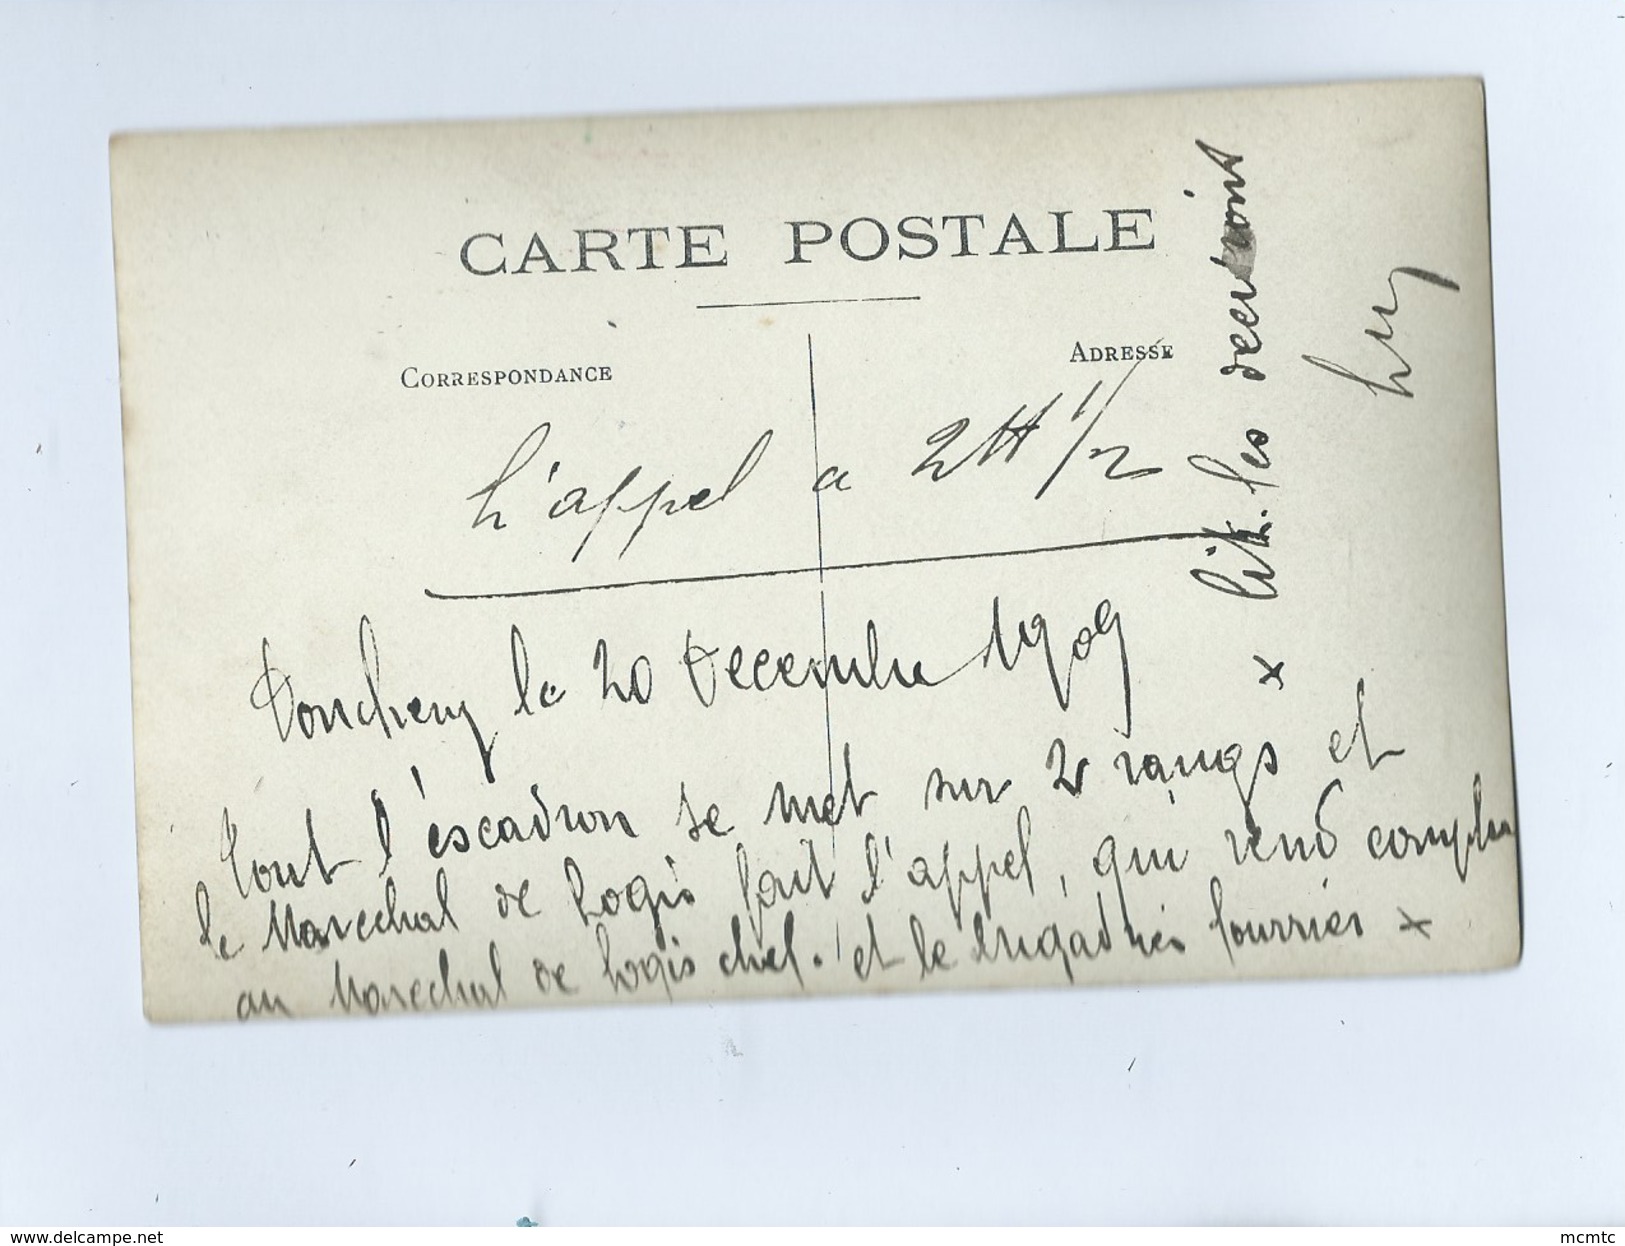 CARTE POSTALE
CORRESPONDANCE
ADRESSE
L'appel a 2H 1/2
Doncheny le 20 Decembre 1909
Tout l'éscadron se met sur 2 rangs et
le Marechal de Logis fait l'appel, qui rend compte
au Marechal de Logis chef. et le brigadier fourrier x
x lit les
delcampe.net
mcmtc